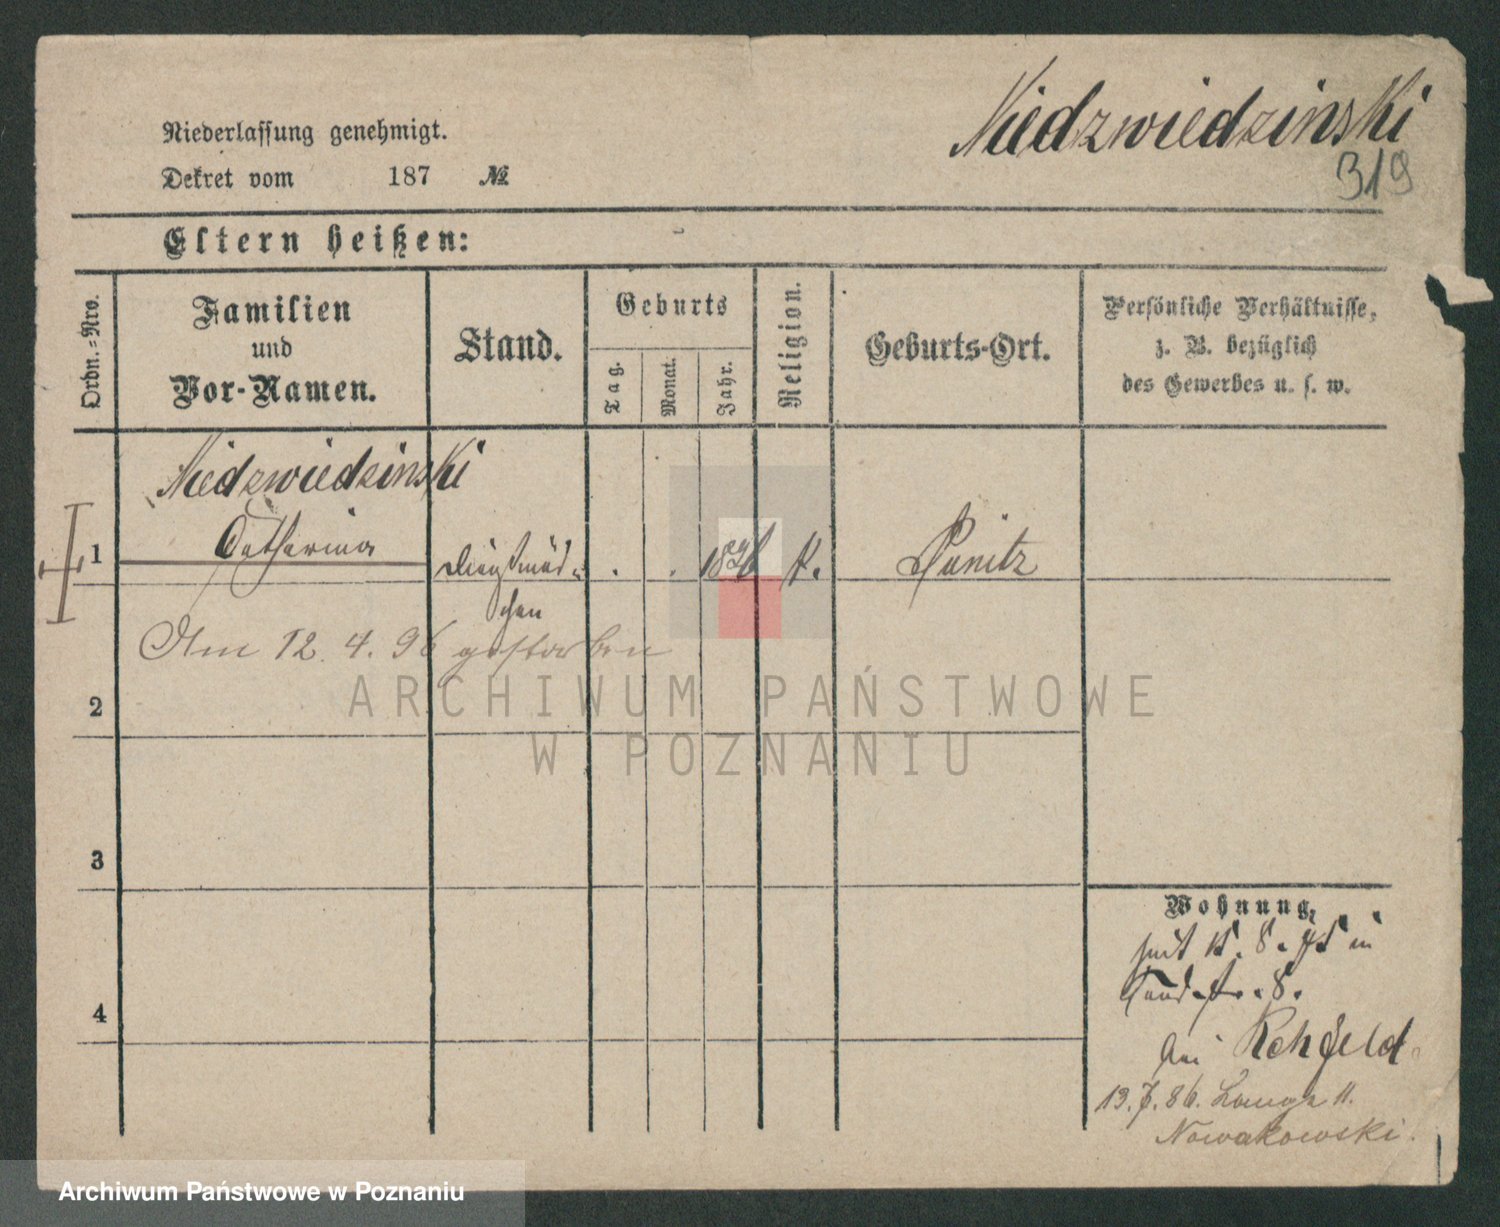 Niedzwiedzinski
319
Niederlassung genehmigt.
Dekret vom 187 №
Eltern heißen:
Ordn.-Nro.
Familien
und
Vor-Namen.
Stand.
Geburts
Tag.
Monat.
Jahr.
Religion.
Geburts-Ort.
Persönliche Verhältnisse,
z. B. bezüglich
des Gewerbes u. s. w.
Niedzwiedzinski
1 Catharina Dienstmäd- 18 K. Punitz
chen
Am 12. 4. 96 gestorben
ARCHIWUM PAŃSTWOWE
W POZNANIU
2
3
4
Wohnung.
seit 15. 8. 75 in
8.
bei Rehfeld
13. 7. 86. Lange 11.
Nowakowski.
Archiwum Państwowe w Poznaniu